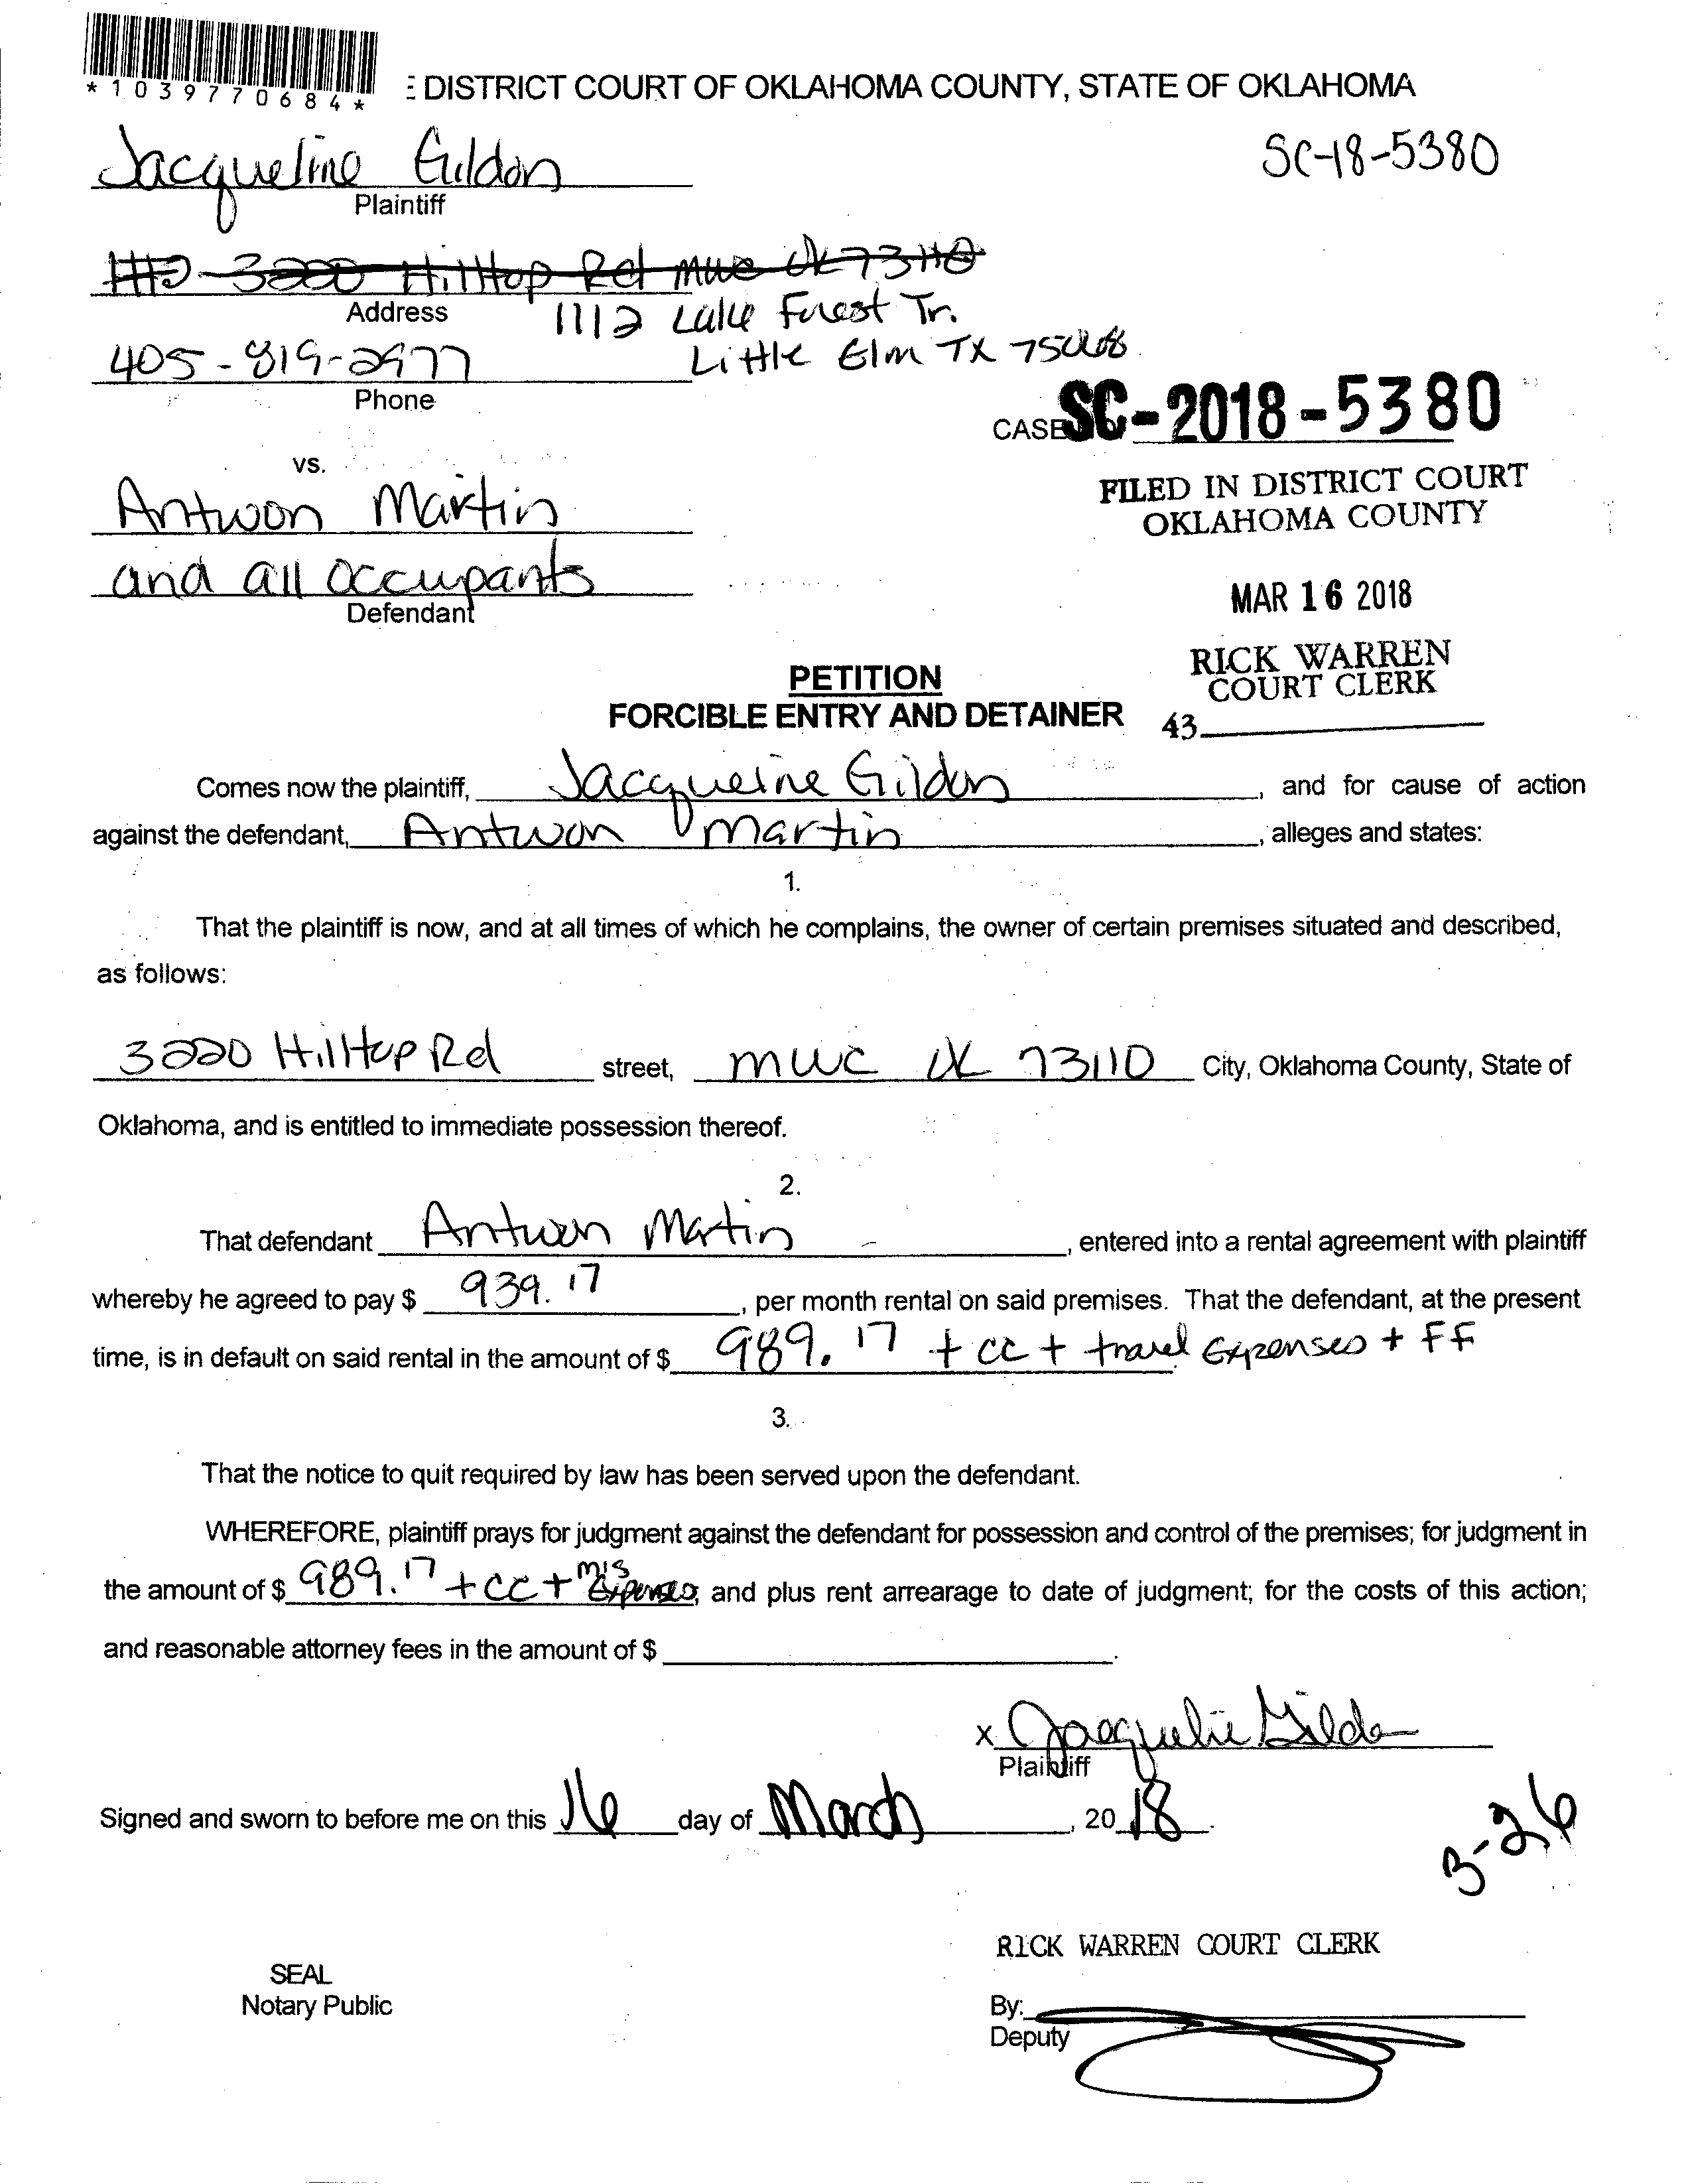 *1039770684*
DISTRICT COURT OF OKLAHOMA COUNTY, STATE OF OKLAHOMA
Jacqueline Gildon
SC-18-5380
Plaintiff
3220 Hilltop Rd MWC OK 73110
Address
1112 Lake Forest Tr.
405-819-2977
Little Elm TX 75068
Phone
CASE SC-2018-5380
vs.
FILED IN DISTRICT COURT
OKLAHOMA COUNTY
Antwon Martin
and all occupants
Defendant
MAR 16 2018
RICK WARREN
COURT CLERK
43
PETITION
FORCIBLE ENTRY AND DETAINER
Comes now the plaintiff, Jacqueline Gildon, and for cause of action
against the defendant, Antwon Martin, alleges and states:
1.
That the plaintiff is now, and at all times of which he complains, the owner of certain premises situated and described,
as follows:
3220 Hilltop Rd street, MWC OK 73110 City, Oklahoma County, State of
Oklahoma, and is entitled to immediate possession thereof.
2.
That defendant Antwon Martin, entered into a rental agreement with plaintiff
whereby he agreed to pay $ 939.17, per month rental on said premises. That the defendant, at the present
time, is in default on said rental in the amount of $ 989.17 + cc + travel Expenses + FF
3.
That the notice to quit required by law has been served upon the defendant.
WHEREFORE, plaintiff prays for judgment against the defendant for possession and control of the premises; for judgment in
the amount of $ 989.17 + CC + mis Expenses, and plus rent arrearage to date of judgment; for the costs of this action;
and reasonable attorney fees in the amount of $ .
x Jacqueline Gildon
Plaintiff
Signed and sworn to before me on this 16 day of March, 2018.
3-26
RICK WARREN COURT CLERK
SEAL
Notary Public
By:
Deputy